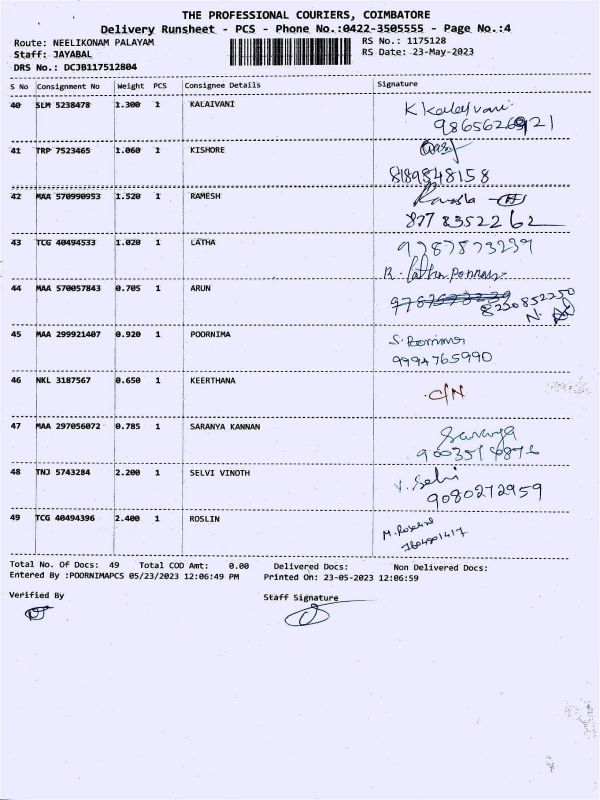 THE PROFESSIONAL COURIERS, COIMBATORE
Delivery Runsheet - PCS - Phone No.:0422-3505555 - Page No.:4
Route: NEELIKONAM PALAYAM RS No.: 1175128
Staff: JAYABAL RS Date: 23-May-2023
DRS No.: DCJB117512804
S No Consignment No Weight PCS Consignee Details Signature
40 SLM 5238478 1.300 1 KALAIVANI K Kalaivani
41 TRP 7523465 1.060 1 KISHORE
8189848158
42 MAA 570990953 1.520 1 RAMESH
8778352262
43 TCG 40494533 1.020 1 LATHA 9787573239
R. Latha
44 MAA 570057843 0.705 1 ARUN
8230852250
45 MAA 299921407 0.920 1 POORNIMA S. Poornima
9994765990
46 NKL 3187567 0.650 1 KEERTHANA C/N
47 MAA 297056072 0.785 1 SARANYA KANNAN Saranya
48 TNJ 5743284 2.200 1 SELVI VINOTH V. Selvi
9080272959
49 TCG 40494396 2.400 1 ROSLIN
Total No. Of Docs: 49 Total COD Amt: 0.00 Delivered Docs: Non Delivered Docs:
Entered By :POORNIMAPCS 05/23/2023 12:06:49 PM Printed On: 23-05-2023 12:06:59
Verified By Staff Signature